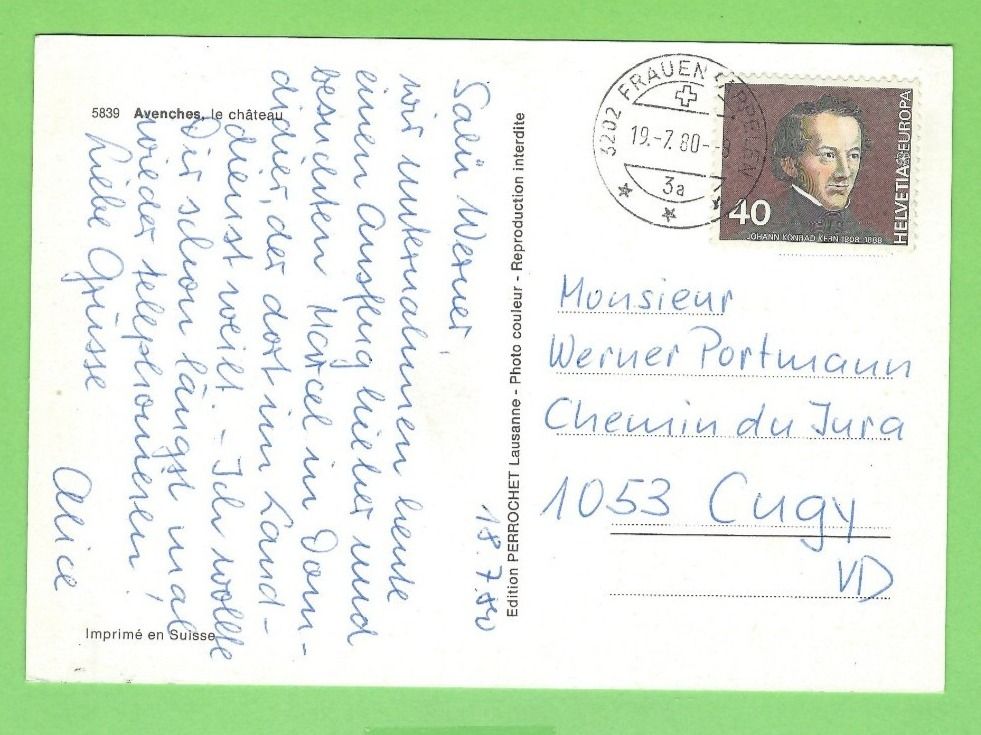 5839 Avenches, le château
18.7.80
Salü Werner,
wir unternahmen heute
einen Ausflug hieher und
besuchten Marcel in Dom-
didier, der dort im Land-
dienst weilt. - Ich wollte
Dir schon längst mal
wieder telephonieren!
Liebe Grüsse
Alice
Imprimé en Suisse
Edition PERROCHET Lausanne - Photo couleur - Reproduction interdite
3202 FRAUENKAPPELEN
19.-7.80--8
3a
40
JOHANN KONRAD KERN 1808-1888
HELVETIA EUROPA
Monsieur
Werner Portmann
Chemin du Jura
1053 Cugy
VD